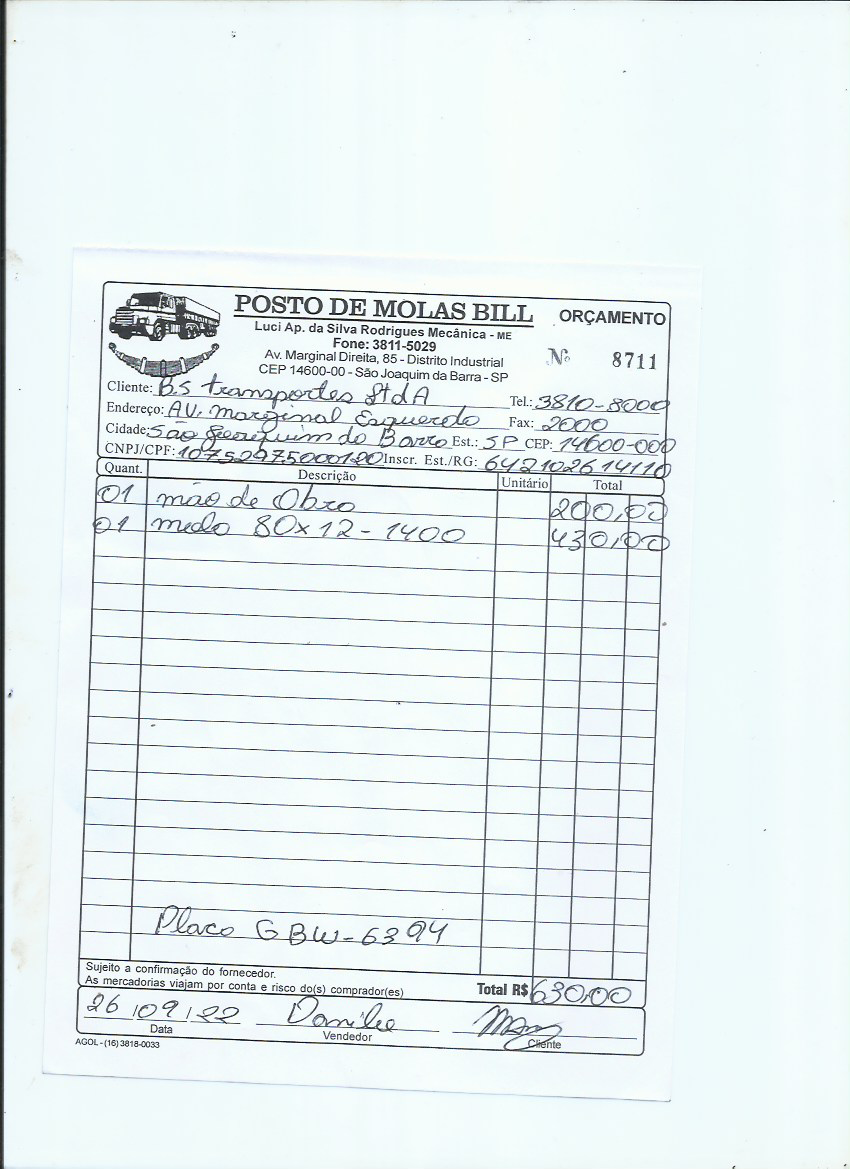 POSTO DE MOLAS BILL
ORÇAMENTO
Luci Ap. da Silva Rodrigues Mecânica - ME
Fone: 3811-5029
Nº 8711
Av. Marginal Direita, 85 - Distrito Industrial
CEP 14600-00 - São Joaquim da Barra - SP
Cliente: B.S transportes LtdA Tel.: 3810-8000
Endereço: AV. marginal Esquerda Fax: 2000
Cidade: São Joaquim da Barra Est.: SP CEP: 14600-000
CNPJ/CPF: 10752975000120 Inscr. Est./RG: 642102614110
Quant. Descrição Unitário Total
01 mão de Obra 200,00
01 80x12-1400 430,00
Placa GBW-6394
Sujeito a confirmação do fornecedor.
As mercadorias viajam por conta e risco do(s) comprador(es)
Total R$ 630,00
26/09/22 Danilo
Data Vendedor Cliente
AGOL - (16) 3818-0033